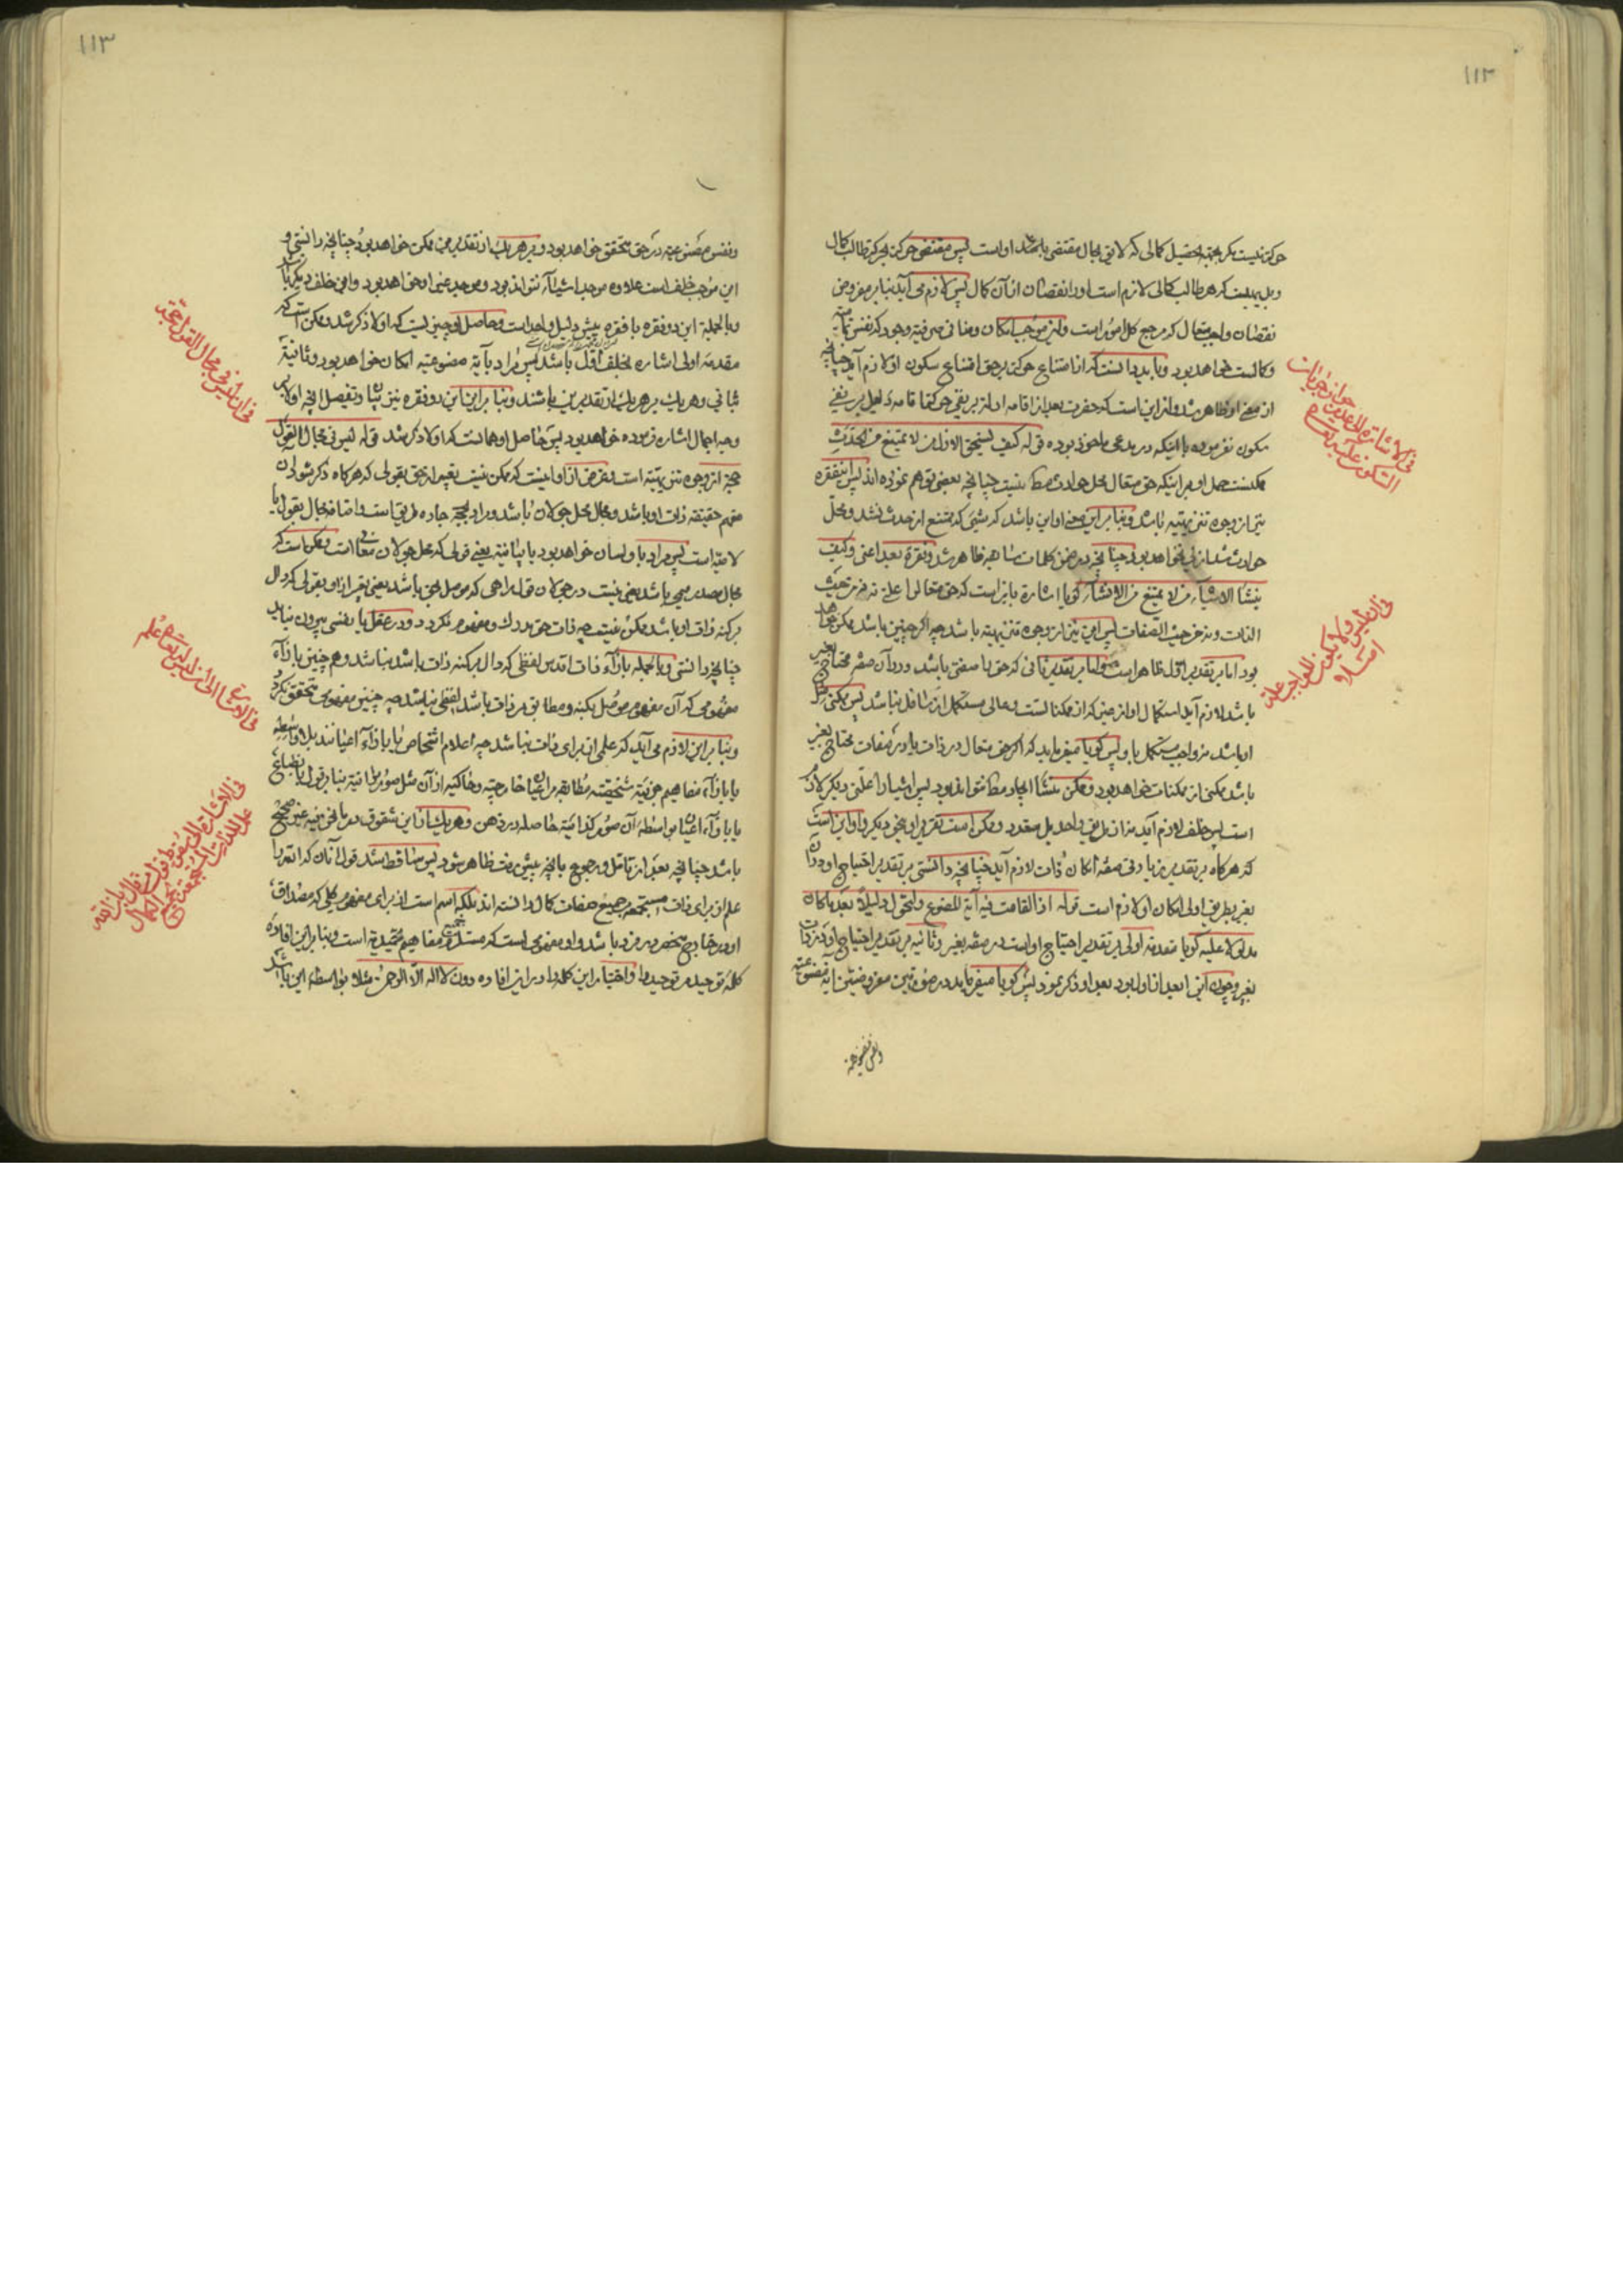 ١١٢
حرکة نیست مکر بجهة تحصیل کمالی که لایق بحال مقتضی باشد اوست پس مقتضی حرکة بجز که طالب کمال
که هر طالب کمالی لازم است او را نقصان از آن کمال پس لازم می آید بنا بر مفروض
نقصان واجب متعال که مرجع کل امور است و این موجب امکان و منافی صرفیة وجود که نفس تمامیة
و کمالست خواهد بود و باید دانست که از امتناع حرکة بر حق امتناع سکون او لازم آید چنانچه
از معنی او ظاهر شد و از این است که حضرت بعد از اقامه ادله بر نفی حرکة اقامه دلیل بر نفی
سکون نفرموده با اینکه در مدعی ماخوذ بوده قوله کیف یستحق الازل من لا یمتنع من الحدث
ممکنست حمل او بر اینکه حق متعال محل حوادث نیست چنانچه بعضی توهم نموده اند پس این فقره
نیز از وجوه تنزیهیه باشد و بنا بر این معنی او این باشد که شیئی که ممتنع از حدث نشد و محل
حوادث شد ازلی نخواهد بود چنانچه در ضمن کلمات سابقه ظاهر شد و فقرة بعد اعنی و کیف
ینشأ الاشیاء من لا یمتنع من الانشاء کویا اشارة باین است که حق تعالی را علة نه من حیث
الذات و نه من حیث الصفات پس این نیز از وجوه تنزیهیه باشد چه اکر چنین باشد ممکن خواهد
بود اما بر تقدیر اول ظاهر است و اما بر تقدیر ثانی که حق با صفتی باشد و در آن صفة محتاج بغیر
باشد لازم آید استکمال او از حیثی که از ممکناتست و عالی مستکمل از سافل نباشد پس ممکنی مثل
او باشد نه واجب مستکمل باو پس کویا میفرماید که اکر حق متعال در ذات یا در صفات محتاج بغیر
باشد ممکنی از ممکنات خواهد بود و ممکن منشأ ایجاد نتواند بود پس اشیا را علتی دیکر لازم
است پس خلف لازم آید و ممکن است تقریر او بنحو دیکر و او این است
که هر کاه بر تقدیر زیادتی صفة امکان ذات لازم آید چنانچه دانستی بر تقدیر احتیاج او در ذات
بغیر بطریق اولی امکان او لازم است قوله اذا لقامت فیه آیة المصنوع و لتحول دلیلا بعد ما کان
مدلولا علیه کویا مقدمه اولی بر تقدیر احتیاج اوست در صفة بغیر و ثانیه بر تقدیر احتیاج او در ذات
بغیر و چون این ابعد از او بود بعد او ذکر نمود پس کویا میفرماید در صورتین مفروضتین آیة مصنوعیة
و نفس مصنوعیة
السکون علیه تعالی
فی ان لیس و لا یکون للواجب علة
١١٣
و نفس مصنوعیة در حق متحقق خواهد بود و بر هر یک از تقدیرین ممکن خواهد بود چنانچه دانستی و
این موجب خلف است علاوه موجد اشیاء نتواند بود و موجد غیر او حق خواهد بود و این خلف دیکر باشد
و بالجملة این دو فقره با فقره پیش دلیل واحد است و حاصل او چیزیست که اولا ذکر شد و ممکن است که
مقدمه اولی اشاره بخلف اول باشد پس مراد بآیة مصنوعیه امکان خواهد بود و ثانیة
ثانی و هر یک بر هر یک از تقدیرین باشند و بنا بر این این دو فقره نیز بیان و تفصیل آنچه اولا بر
وجه اجمال اشاره فرموده خواهد بود پس حاصل او همانست که اولا ذکر شد قوله لیس فی محال القول
حجة از وجوه تنزیهیة است و غرض از او اینست که ممکن نیست تعبیر از حق بقولی که هر کاه ذکر شود آن
مفهم حقیقة ذات او باشد و محال محل جولان باشد و مراد بحجة جاده طریق است و اضافه محال بقول یا
لامیة است پس مراد باو لسان خواهد بود یا بیانیة یعنی قولی که محل جولان معانی است و ممکن است که
محال مصدر میمی باشد یعنی نیست در جولان قول راهی که موصل بحق باشد یعنی تعبیر از او بقولی که دال
بر کنه ذات او باشد ممکن نیست چه ذات حق مدرک و مفهوم نکردد و در عقل یا نفسی بیرون نیاید
چنانچه دانستی و بالجمله بازاء ذات اقدس لفظی که دال بر کنه ذات باشد نباشد و هم چنین بازاء
مفهومی که آن مفهوم موصل بکنه و مطابق در ذات باشد لفظی نباشد چه چنین مفهومی متحقق نکردد
و بنا بر این لازم می آید که علمی از برای ذات نباشد چه اعلام اشخاص یا بازاء اعیانند بلا واسطه
یا بازاء مفاهیم جزئیة متشخصة مطابقه بر اعیان خارجیة و حاکیه از آن مثل صور مراتیة بنا بر قول بانطباع
یا بازاء اعیان بواسطه آن صور کذائیة حاصله در ذهن و هر یک از این شقوق در ما نحن فیه غیر صحیح
باشد چنانچه بعد از تأمل و رجوع بآنچه پیش رفت ظاهر شود پس ساقط شد قول آنان که الله را
علم از برای ذات مستجمعه جمیع صفات کمال دانسته اند بلکه اسم است از برای مفهوم کلی که مصداق
او در خارج منحصر در فرد باشد و او مفهومی است که مستلزم جمیع مفاهیم تمجیدیة است و بنا بر این افادة
کلمة توحید مر توحید را و اختیار این کلمه را در این افاده دون لا اله الا الرحمن مثلا بواسطه این باشد
فی ان لیس فی محال القول حجة